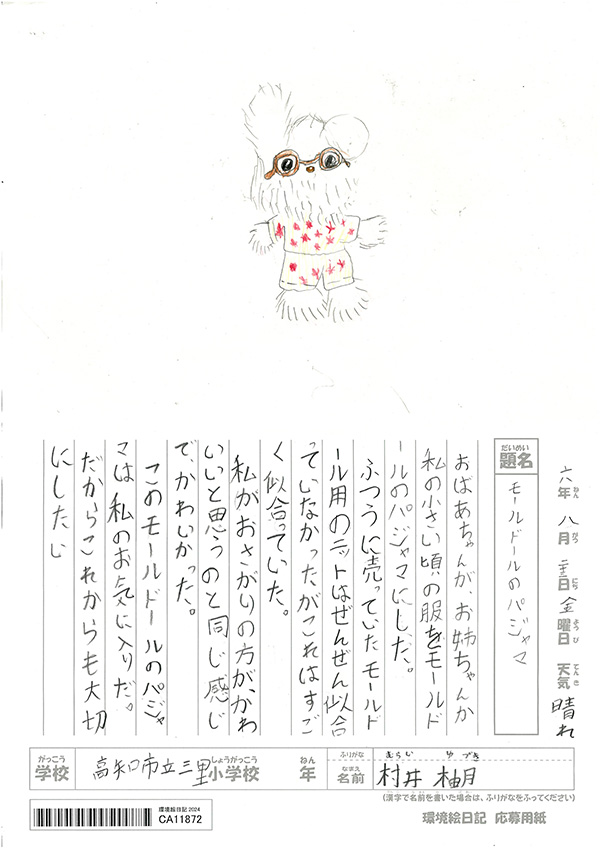 六年 八月 日 金曜日 天気 晴れ
ねん がつ にち ようび てんき
だいめい
題名
モールドールのパジャマ
おばあちゃんが、お姉ちゃんか
私の小さい頃の服をモールド
ールのパジャマにした。
ふつうに売っていたモールド
ール用のニットはぜんぜん似合
っていなかったがこれはすご
く似合っていた。
私がおさがりの方が、かわ
いいと思うのと同じ感じ
で、かわいかった。
このモールドールのパジャ
マは私のお気に入りだ。
だからこれからも大切
にしたい
がっこう
学校
高知市立三里
しょうがっこう
小学校
ねん
年
ふりがな
むらい ゆづき
なまえ
名前
村井 柚月
(漢字で名前を書いた場合は、ふりがなをふってください)
環境絵日記 2024
CA11872
環境絵日記 応募用紙